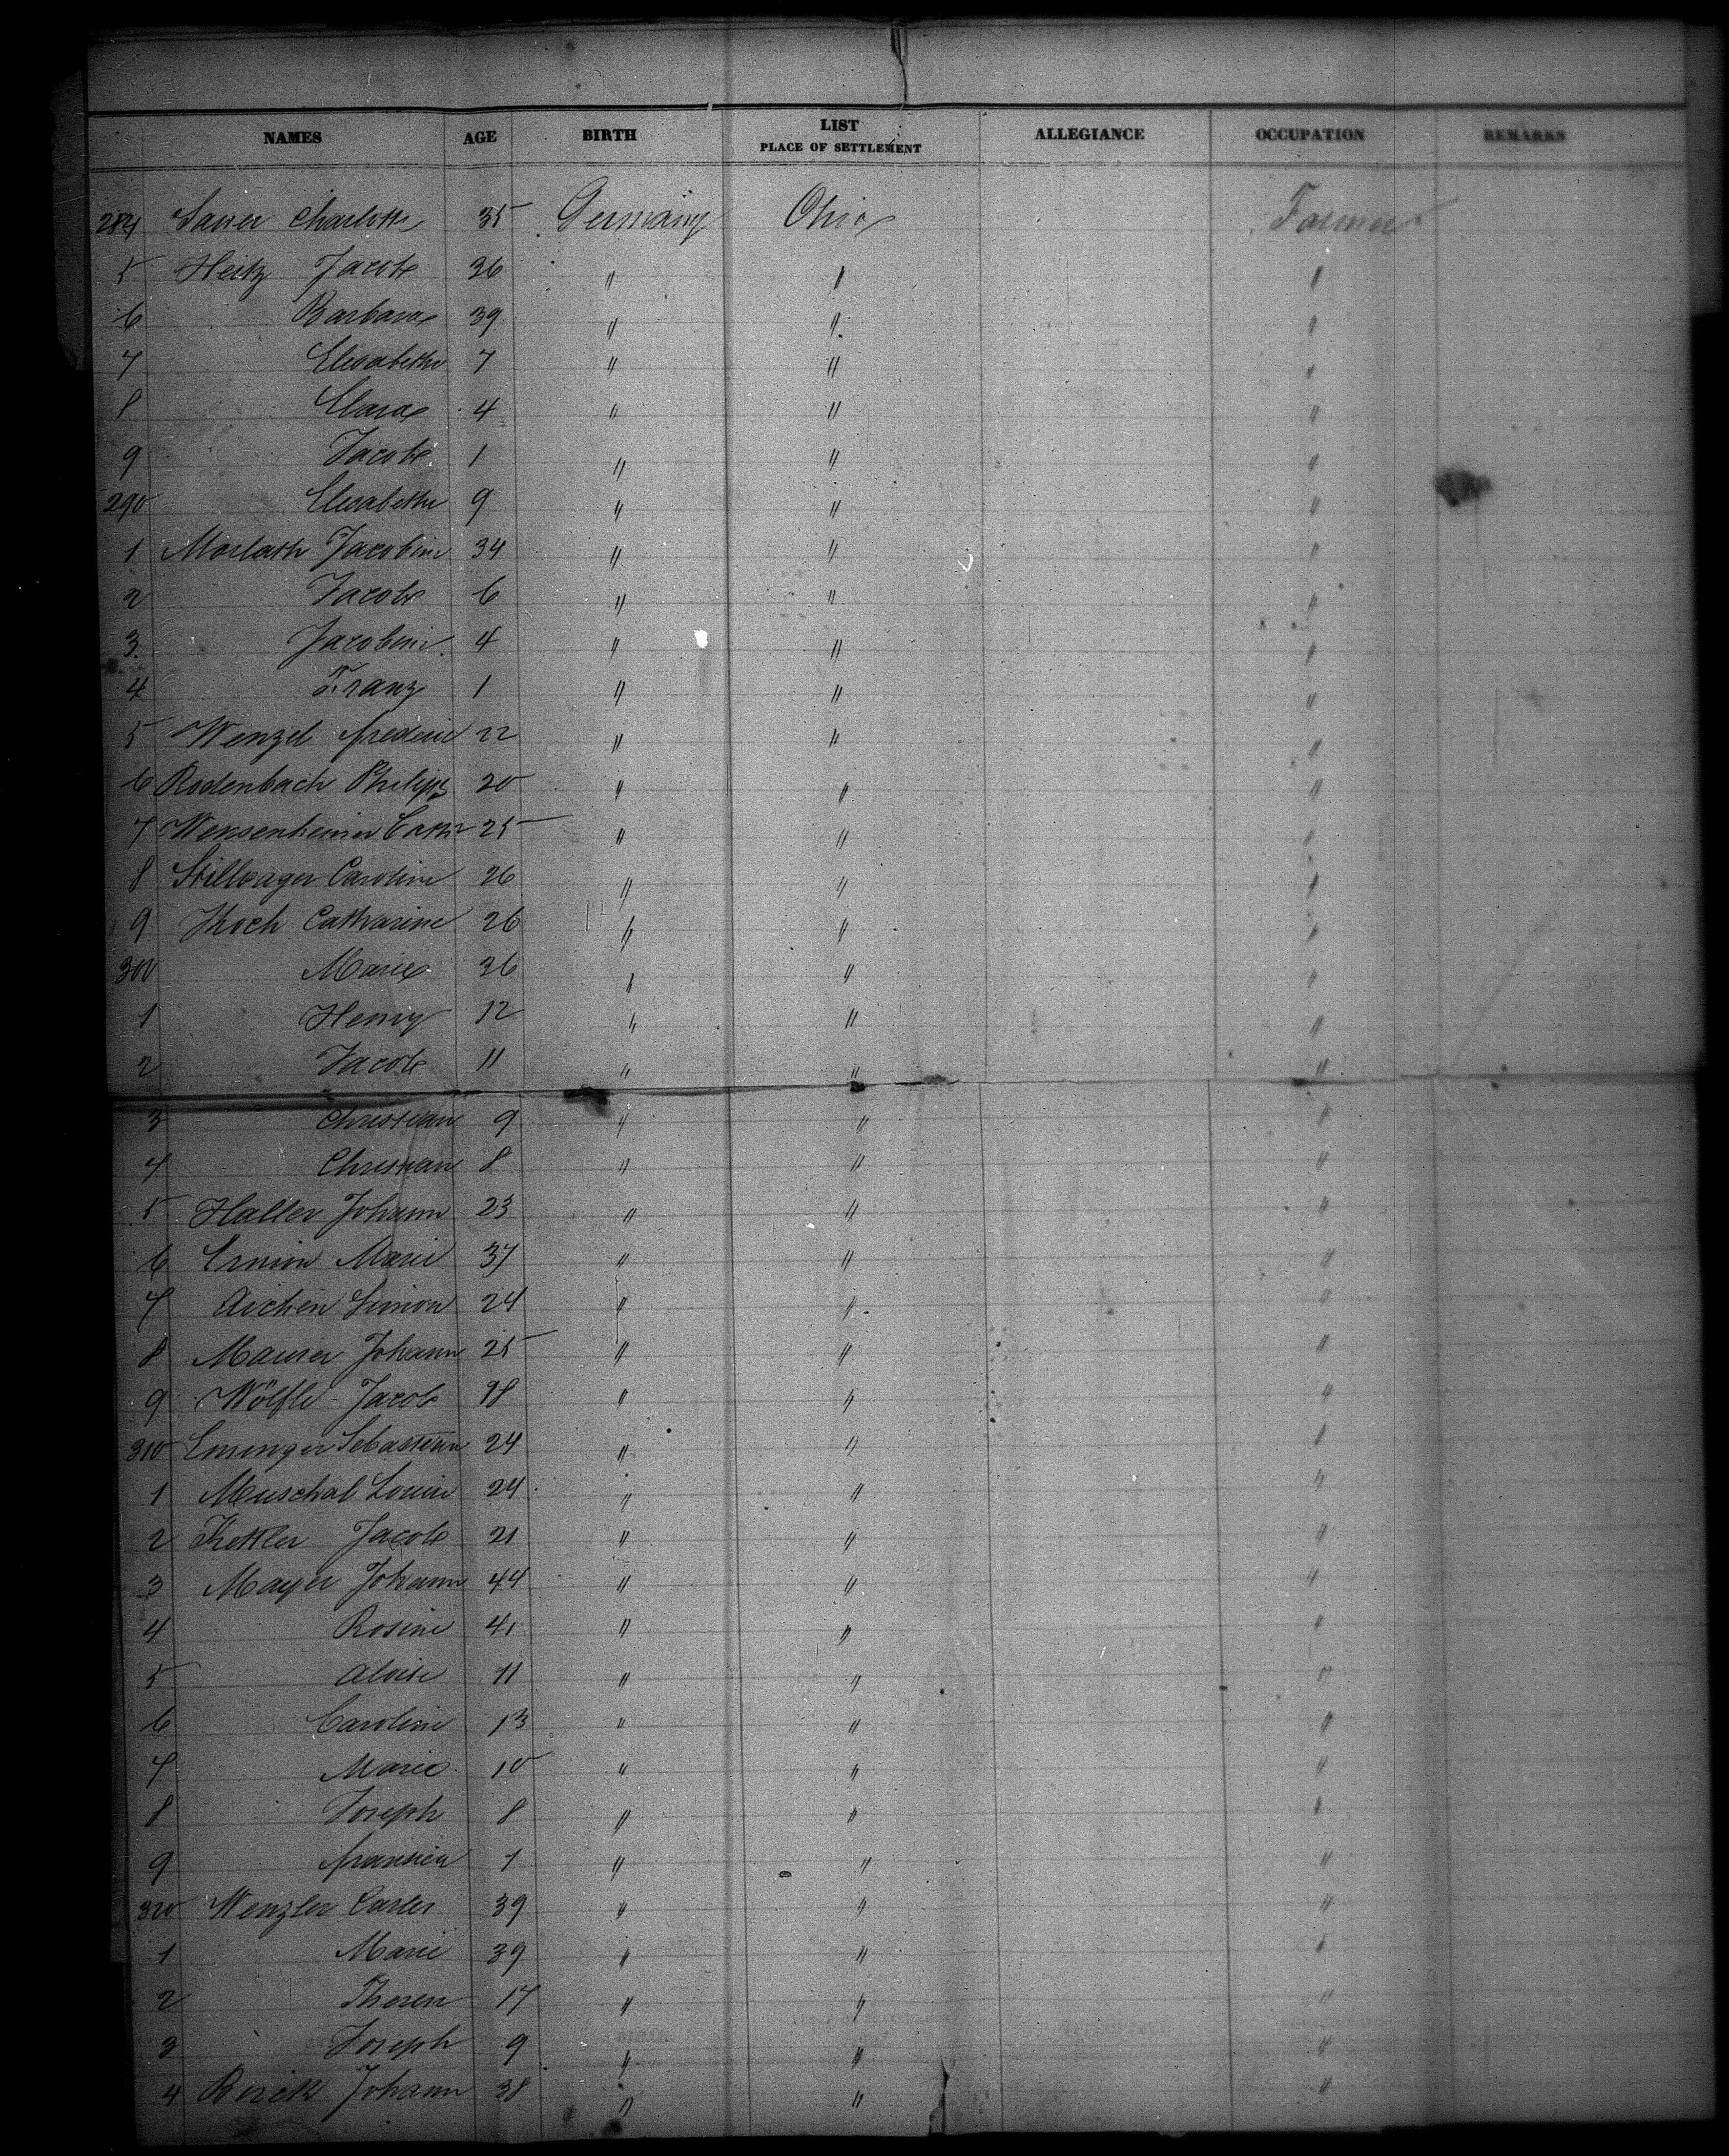 NAMES AGE BIRTH LIST PLACE OF SETTLEMENT ALLEGIANCE OCCUPATION REMARKS
284 Sauer Charlotte 35 Germany Ohio Farmer
5 Heitz Jacob 36 " " "
6 Barbara 39 " " "
7 Elisabethe 7 " " "
8 Clara 4 " " "
9 Jacob 1 " " "
290 Elisabethe 9 " " "
1 Morlath Jacobine 34 " " "
2 Jacob 6 " " "
3 Jacobine 4 " " "
4 Franz 1 " " "
5 Wenzel frederic 22 " " "
6 Rodenbach Philipp 20 " " "
7 Weissenheimer Cath 25 " " "
8 Stillvager Caroline 26 " " "
9 Khoch Catharine 26 " " "
300 Marie 36 " " "
1 Henry 12 " " "
2 Jacob 11 " " "
3 Christian 9 " " "
4 Christian 8 " " "
5 Haller Johann 23 " " "
6 Marie 37 " " "
7 Aichen Simon 24 " " "
8 Maurer Johann 25 " " "
9 Wölfle Jacob 18 " " "
310 Sebastian 24 " " "
1 Muschal Louise 24 " " "
2 Kettler Jacob 21 " " "
3 Mayer Johann 44 " " "
4 Rosine 41 " " "
5 Aloise 11 " " "
6 Caroline 13 " " "
7 Marie 10 " " "
8 Joseph 8 " " "
9 1 " " "
320 Wenzler Carles 39 " " "
1 Marie 39 " " "
2 Theren 17 " " "
3 Joseph 9 " " "
4 Johann 38 " " "